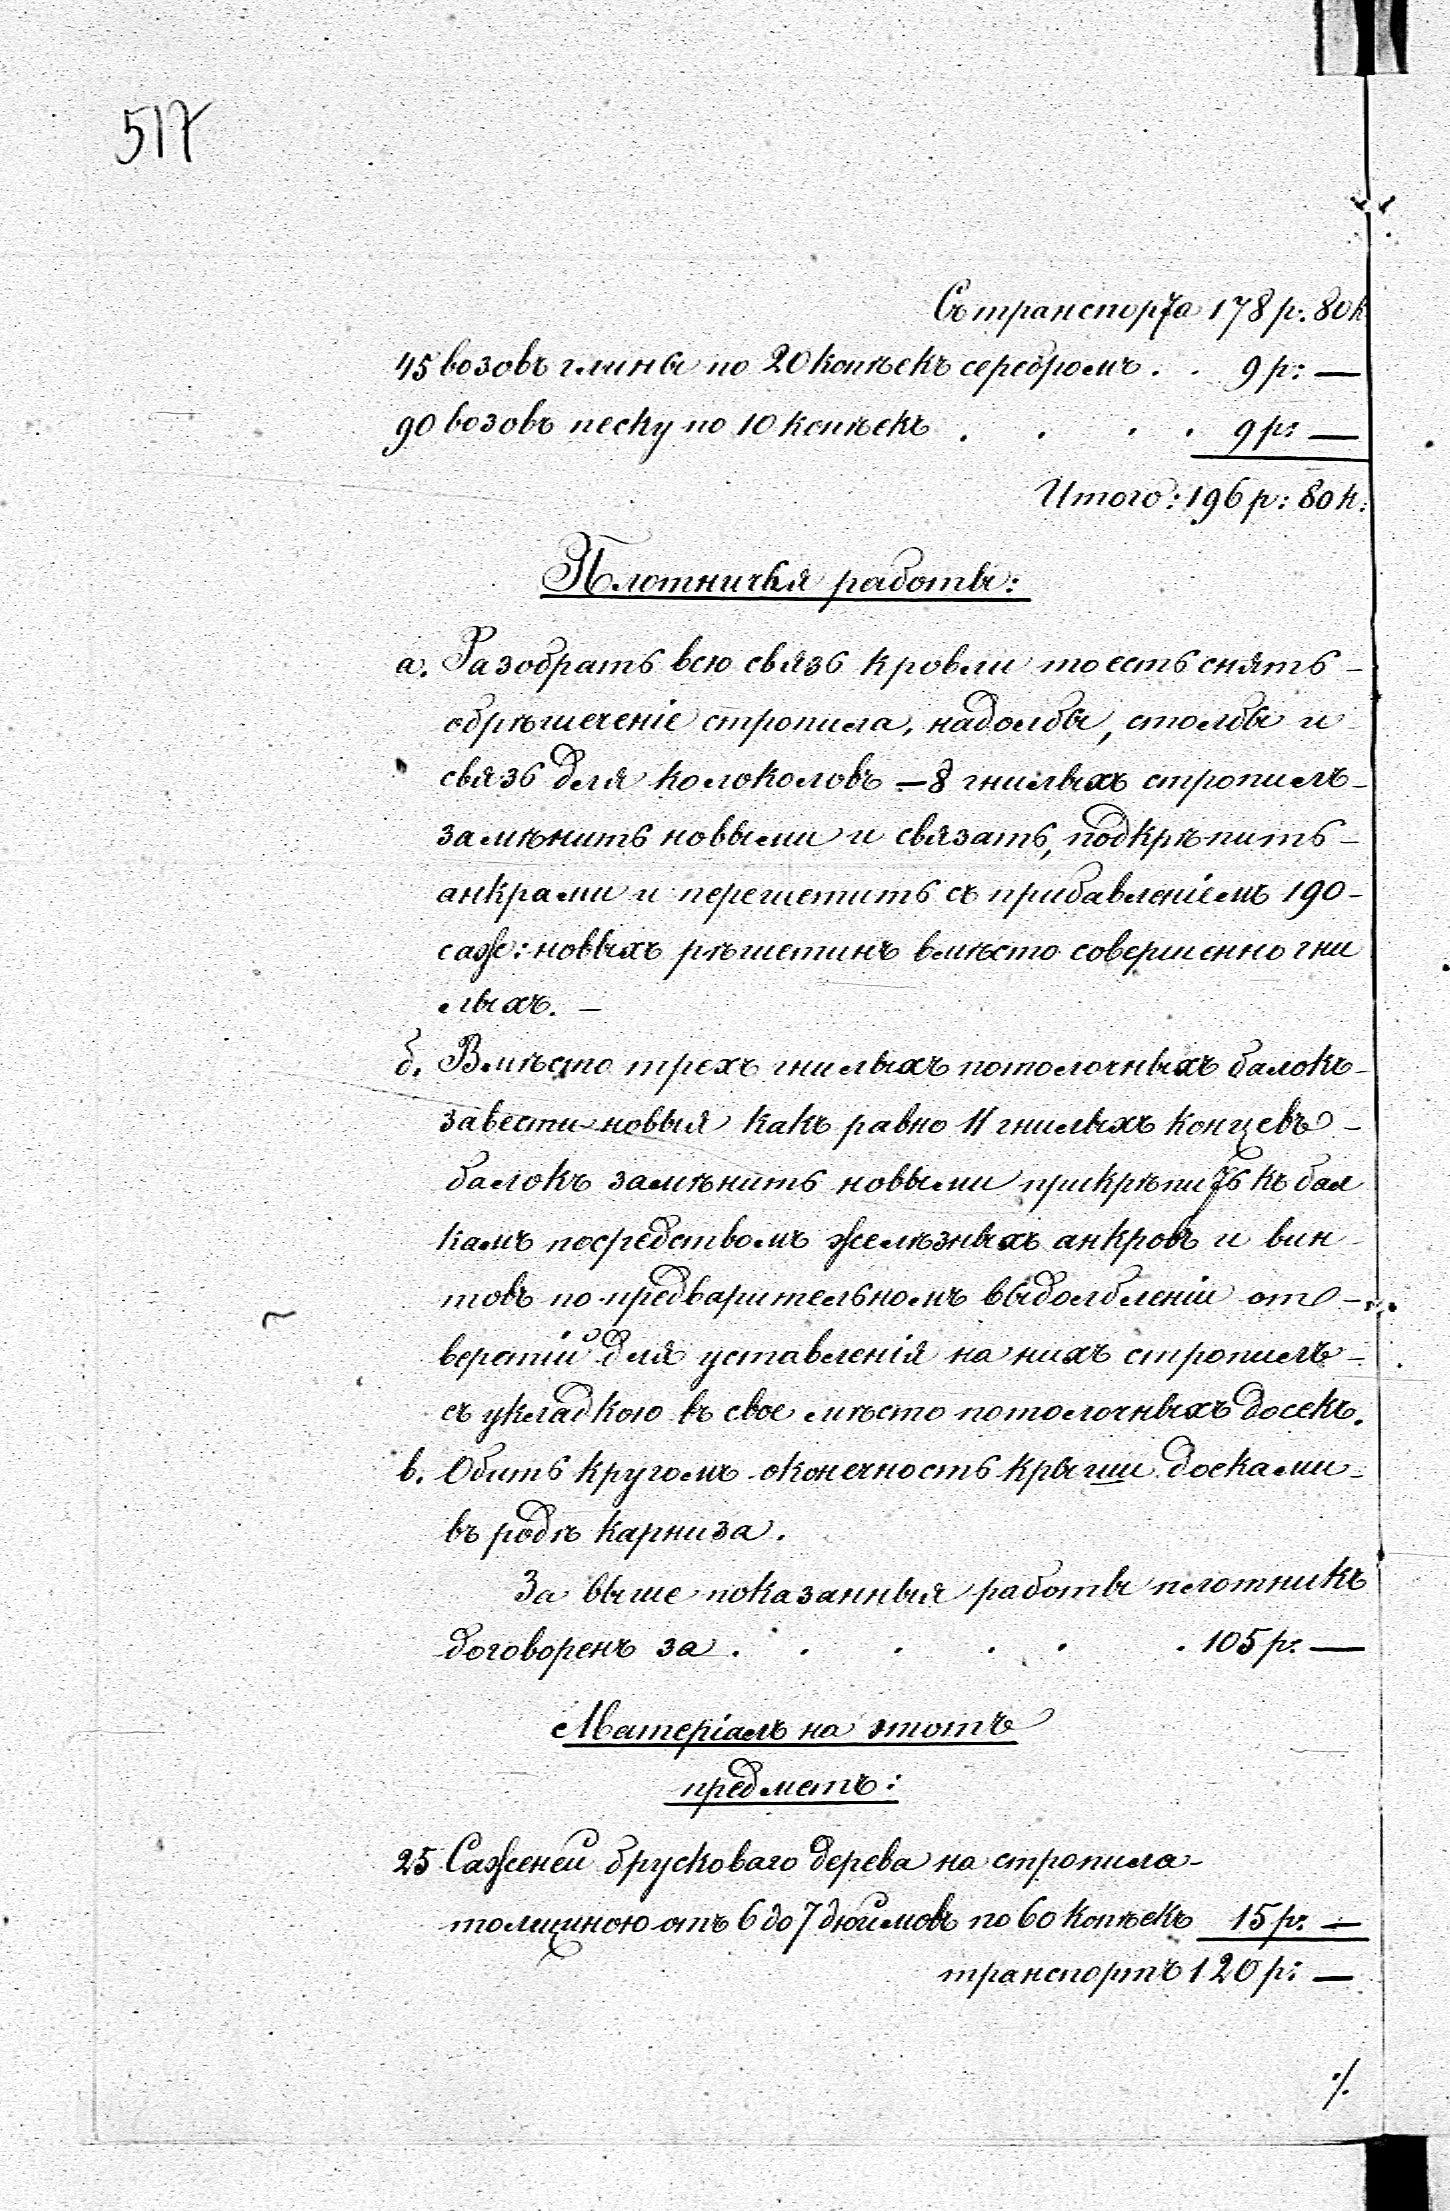 517
Съ транспорта 178 р: 80 к
45 возовъ глины по 20 копѣекъ серебромъ . . 9 р: —
90 возовъ песку по 10 копѣекъ . . . . 9 р: —
Итого: 196 р: 80 к:
Плотничья работы:
а. Разобрать всю связь кровли то есть снять -
обрѣшеченіе стропила, надолбы, столбы и
связь для колоколовъ - 8 гнилыхъ стропилъ -
замѣнить новыми и связать, подкрѣпить -
анкрами и перешетить съ прибавленіемъ 190 -
саж: новыхъ рѣшетинъ вмѣсто совершенно гни
лыхъ. —
б. Вмѣсто трехъ гнилыхъ потолочныхъ балокъ -
завести новыя какъ равно 11 гнилыхъ концевъ -
балокъ замѣнить новыми прикрѣпить къ бал
камъ посредствомъ желѣзныхъ анкровъ и вин -
товъ по предварительномъ выдолбленіи от -
верстій для уставленія на нихъ стропилъ -
съ укладкою въ свое мѣсто потолочныхъ досекъ.
в. Обить кругомъ оконечность крыши досками -
въ родѣ карниза.
За выше показанныя работы плотникъ
договоренъ за . . . . . . 105 р: —
Матеріалъ на этотъ
предметъ:
25 Саженей брусковаго дерева на стропила -
толщиною отъ 6 до 7 дюймовъ по 60 копѣекъ 15 р: —
транспортъ 120 р: —
./.